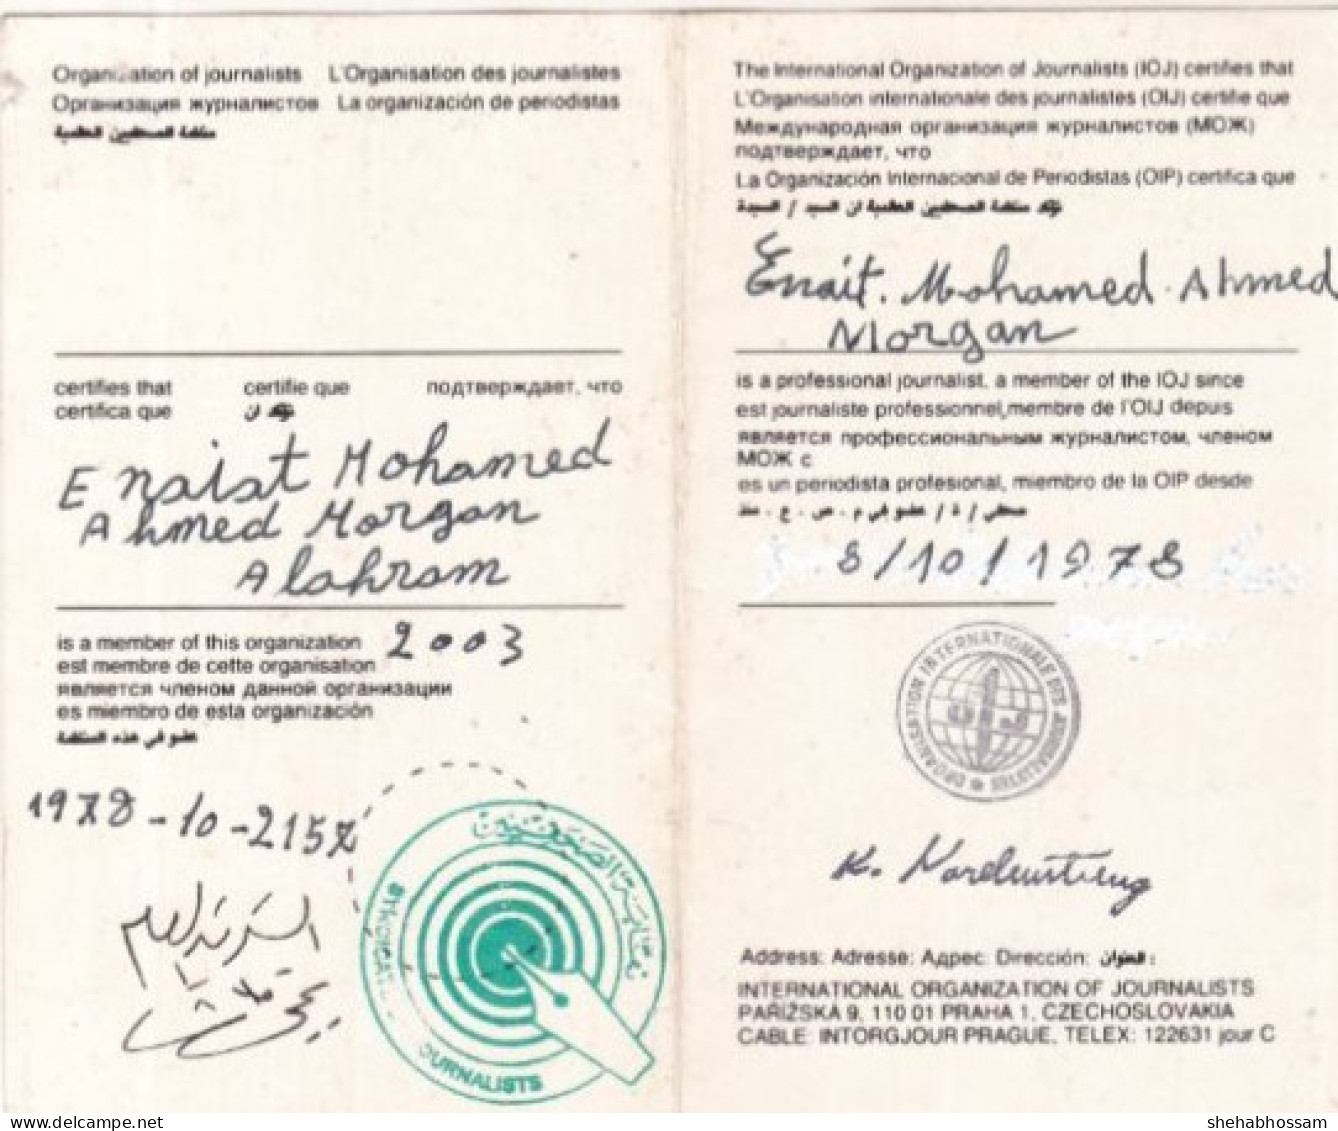 Organization of journalists L'Organisation des journalistes
Организация журналистов La organización de periodistas
منظمة الصحفيين العالمية
certifies that certifie que подтверждает, что
certifica que تؤكد ان
Enaiat Mohamed
Ahmed Morgan
Alahram
is a member of this organization 2003
est membre de cette organisation
является членом данной организации
es miembro de esta organización
عضو في هذه المنظمة
1978-10-2157
السكرتير العام
نقابة الصحفيين
SYNDICAL JOURNALISTS
The International Organization of Journalists (IOJ) certifies that
L'Organisation internationale des journalistes (OIJ) certifie que
Международная организация журналистов (МОЖ)
подтверждает, что
La Organización Internacional de Periodistas (OIP) certifica que
تؤكد منظمة الصحفيين العالمية ان السيد / السيدة
Enait. Mohamed. Ahmed
Morgan
is a professional journalist, a member of the IOJ since
est journaliste professionnel, membre de l'OIJ depuis
является профессиональным журналистом, членом
МОЖ с
es un periodista profesional, miembro de la OIP desde
صحفي / ة / عضو في م . ص . ع . منذ
8/10/1978
ORGANISATION INTERNATIONALE DES JOURNALISTES
OIJ
Address: Adresse: Адрес: Dirección: العنوان :
INTERNATIONAL ORGANIZATION OF JOURNALISTS
PAŘÍŽSKA 9, 110 01 PRAHA 1, CZECHOSLOVAKIA
CABLE: INTORGJOUR PRAGUE, TELEX: 122631 jour C
delcampe.net
shehabhossam